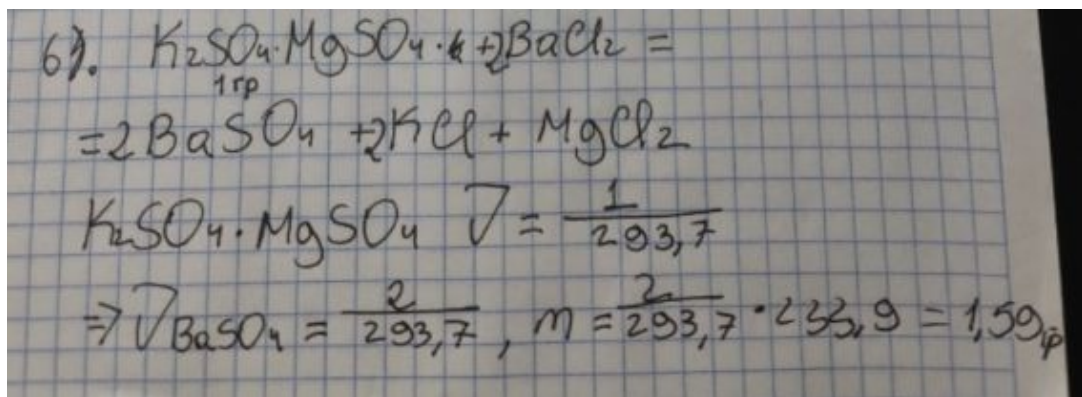 6). K₂SO₄·MgSO₄· +2BaCl₂ =
1гр
=2BaSO₄ +2KCl + MgCl₂
K₂SO₄·MgSO₄ ν = 1/293,7
⇒ ν BaSO₄ = 2/293,7, m = 2/293,7 · 233,9 = 1,59гр